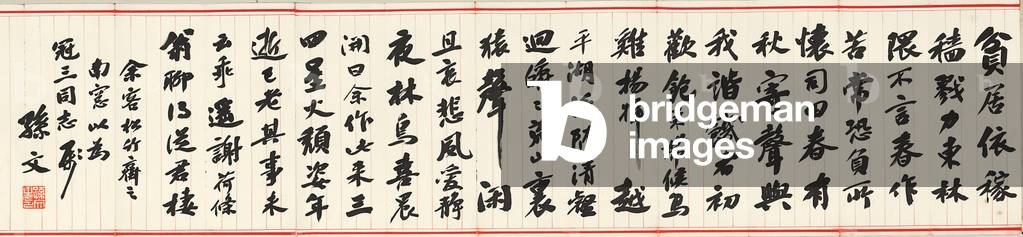 貧居依稼
穡戮力東林
隈不言春作
苦常恐負所
懷司田春有
秋寄聲與
我諧 者初
歡飽 候鳥
雞楊 越
平湖 隨清壑
迴 荒山裏
猿聲閑
且哀悲風愛靜
夜林鳥喜晨
開曰余作此來三
四星火頹姿年
逝已老其事未
云乖遥謝荷篠
翁聊得從君棲
余客松竹齋之
南窓以為
冠三同志屬
孫文
bridgeman
images